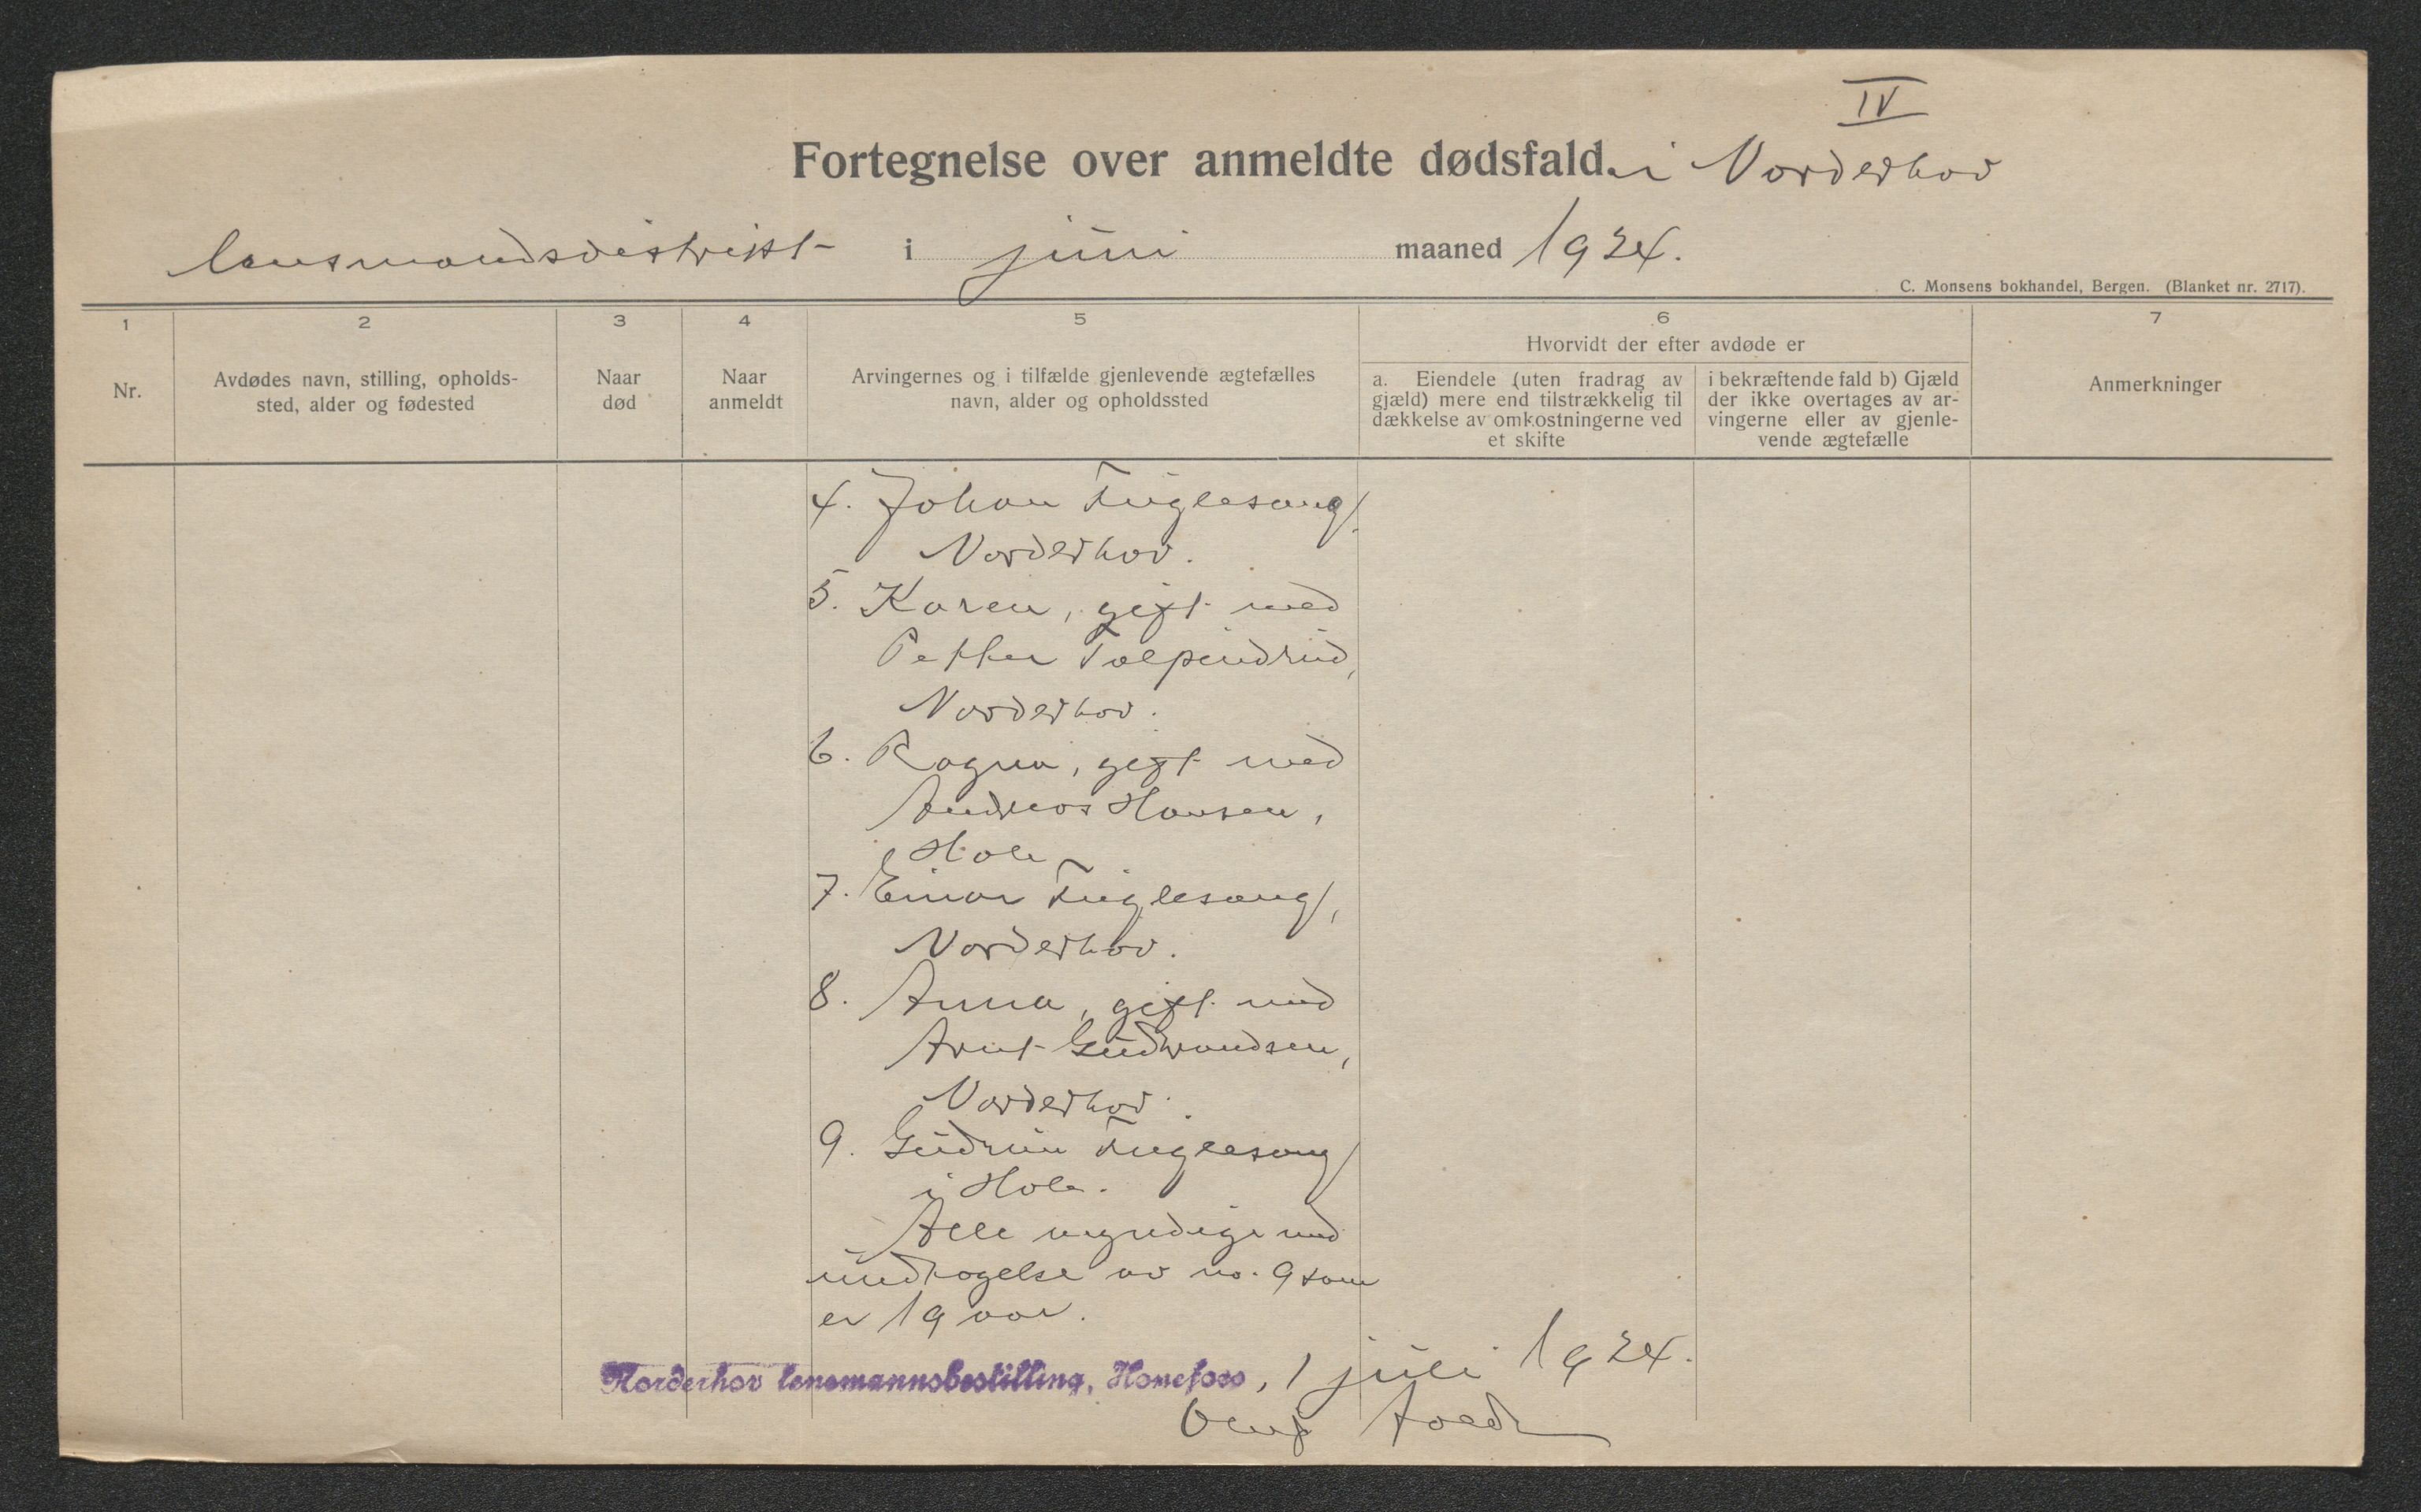 IV
Fortegnelse over anmeldte dødsfald. i Norderhov
lensmandsdistrikt i juni maaned 1924.
C. Monsens bokhandel, Bergen. (Blanket nr. 2717).
1 2 3 4 5 6 7
Hvorvidt der efter avdøde er
Nr.
Avdødes navn, stilling, opholds-
sted, alder og fødested
Naar
død
Naar
anmeldt
Arvingernes og i tilfælde gjenlevende ægtefælles
navn, alder og opholdssted
a. Eiendele (uten fradrag av
gjæld) mere end tilstrækkelig til
dækkelse av omkostningerne ved
et skifte
i bekræftende fald b) Gjæld
der ikke overtages av ar-
vingerne eller av gjenle-
vende ægtefælle
Anmerkninger
4. Johan Fuglesang,
Norderhov.
5. Karen, gift med
Petter Tolpinrud,
Norderhov.
6. Ragna, gift med
Andreas Hansen,
Hole
7. Einar Fuglesang,
Norderhov.
8. Anna, gift med
Arnt Gudbrandsen,
Norderhov.
9. Gudrun Fuglesang
i Hole.
Alle myndige med
undtagelse av no. 9 som
er 19 aar.
Norderhov lensmannsbestilling, Hønefoss, 1 juli 1924.
Oluf